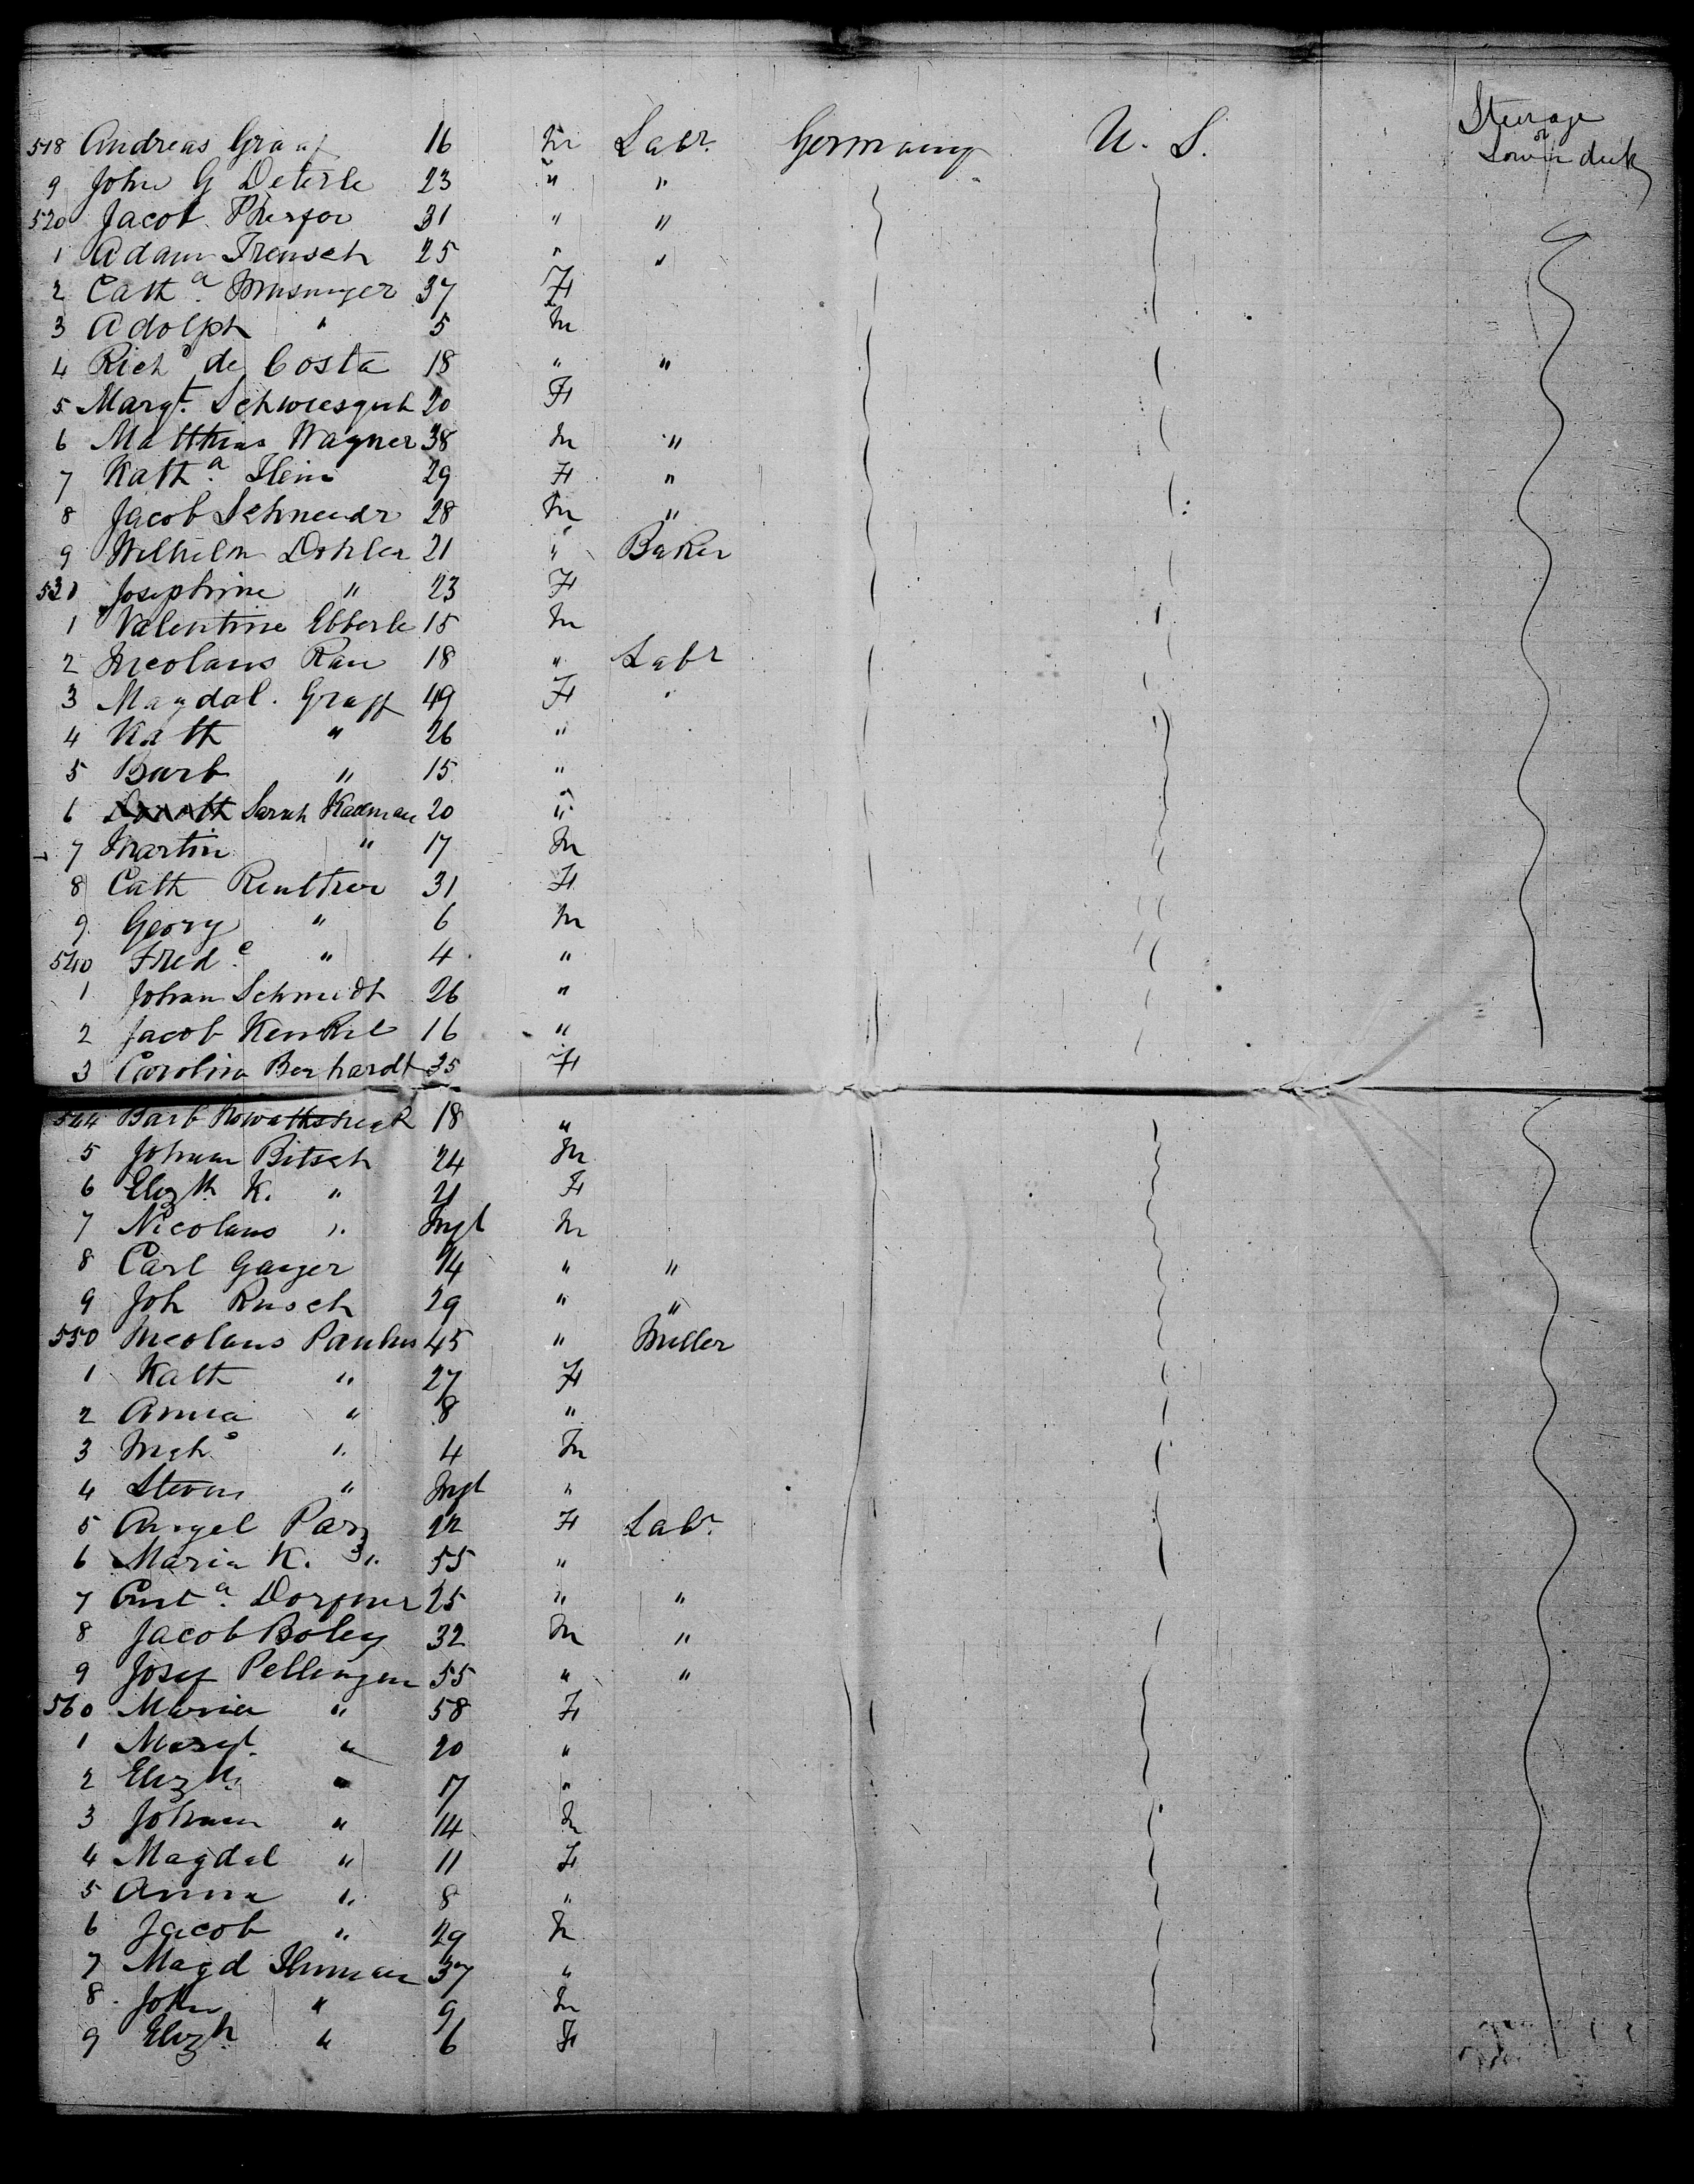 518 Andreas Graf 16 m Labr. Germany U. S. Steerage or Lower deck
9 John G Deterle 23 " "
520 Jacob 31 " "
1 Adam Trensch 25 " "
2 Cath a. 37 F
3 Adolph " 5 m
4 Rich d de Costa 18 " "
5 Margt. 20 F
6 Matthias Wagner 38 m "
7 Kath a. 29 F "
8 Jacob Schneidr 28 m "
9 Wilhelm Dohler 21 " Baker
530 Josephine " 23 F
1 Valentine Ebberle 15 m
2 Nicolaus Rau 18 " Labr
3 Magdal. Graff 49 F "
4 Kath " 26 "
5 Barb " 15 "
6 Sarah Kadman 20 "
7 Martin " 17 m
8 Cath 31 F
9 Georg " 6 m
540 Fred c. " 4 "
1 Johan Schmidt 26 "
2 Jacob Kenkel 16 "
3 Carolina Berhardt 35 F
544 Barb 18 "
5 Johann Bitsch 24 m
6 Elizth K. " 21 F
7 Nicolaus " m
8 Carl Gayer 14 " "
9 Joh Rusch 29 " "
550 Nicolaus Paulus 45 " Miller
1 Kath " 27 F
2 Anna " 8 "
3 " 4 m
4 Steven " "
5 Angel Parz 22 F Labr.
6 Maria K. " 55 "
7 Dorfner 25 " "
8 Jacob Boley 32 m "
9 Josef Pellingen 55 " "
560 Maria " 58 F
1 Margt. " 20 "
2 Elizth " 17 "
3 Johann " 14 m
4 Magdal " 11 F
5 Anna " 8 "
6 Jacob " 29 m
7 Magd 37 "
8 John " 9 m
9 Elizh " 6 F